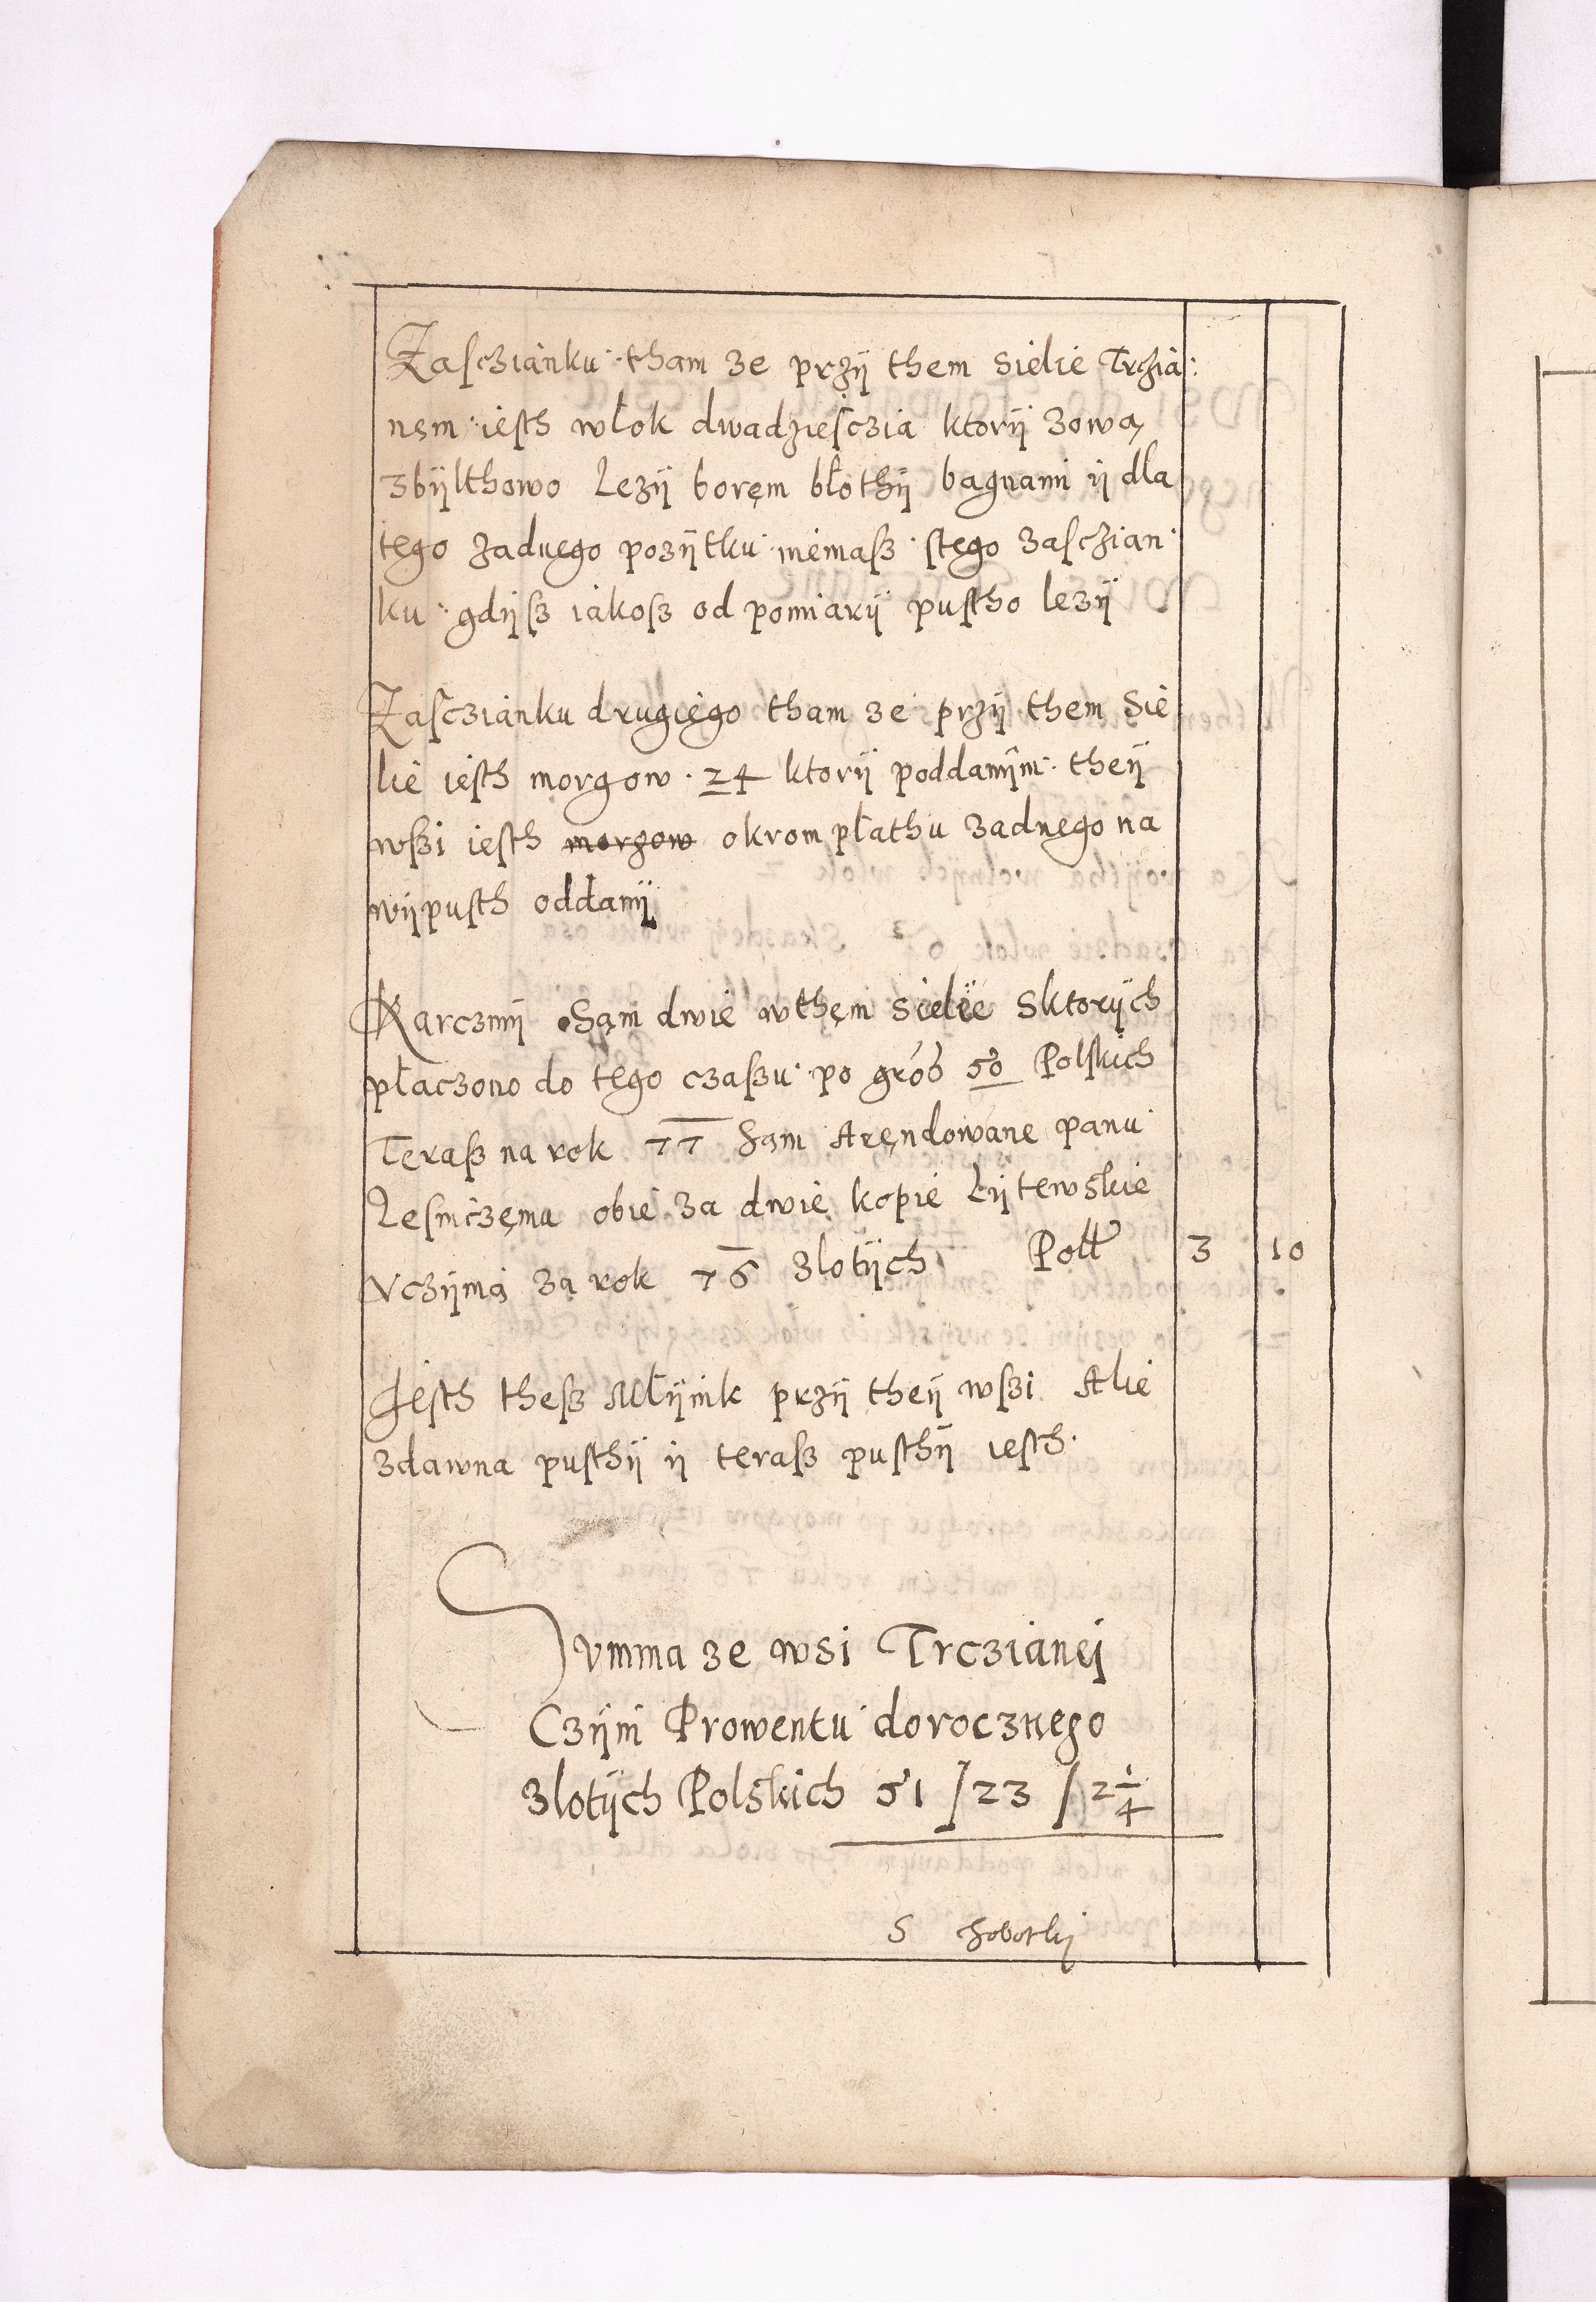 Zasczianku tham ze przÿ them sielie Trzia:
nęm iesth włok dwadziesczia ktorÿ zową
zbÿlthowo Lezÿ boręm błothÿ bagnami ÿ dla
tęgo zadnego pozÿtku niemasz stęgo zasczian
ku gdÿsz iakosz od pomiarÿ pustho lezÿ
Zasczianku drugięgo tham ze przÿ them Sie
lie iesth morgow 24 ktorÿ poddanÿm theÿ
wszi iesth morgow okrom płathu zadnego na
wÿpusth oddanÿ
Karczmÿ Sąm dwie wthęm sielie Sktorÿch
płaczono do tęgo czaszu po gros 50 Polskich
Terasz na rok 77 Sąm Aręndowane panu
Lesniczęmu obie za dwie kopie Lÿtewskie
Vczÿmą za rok 76 zlotÿch Poll 3 10
Jesth thesz Młÿnik przÿ theÿ wszi Alie
zdawna pusthÿ ÿ terasz pusthÿ iesth
Svmma ze wsi Trczianei
Czÿni Prowentu dorocznego
zlotÿch Polskich 51 / 23 / 2 1/4
S Sobotkÿ